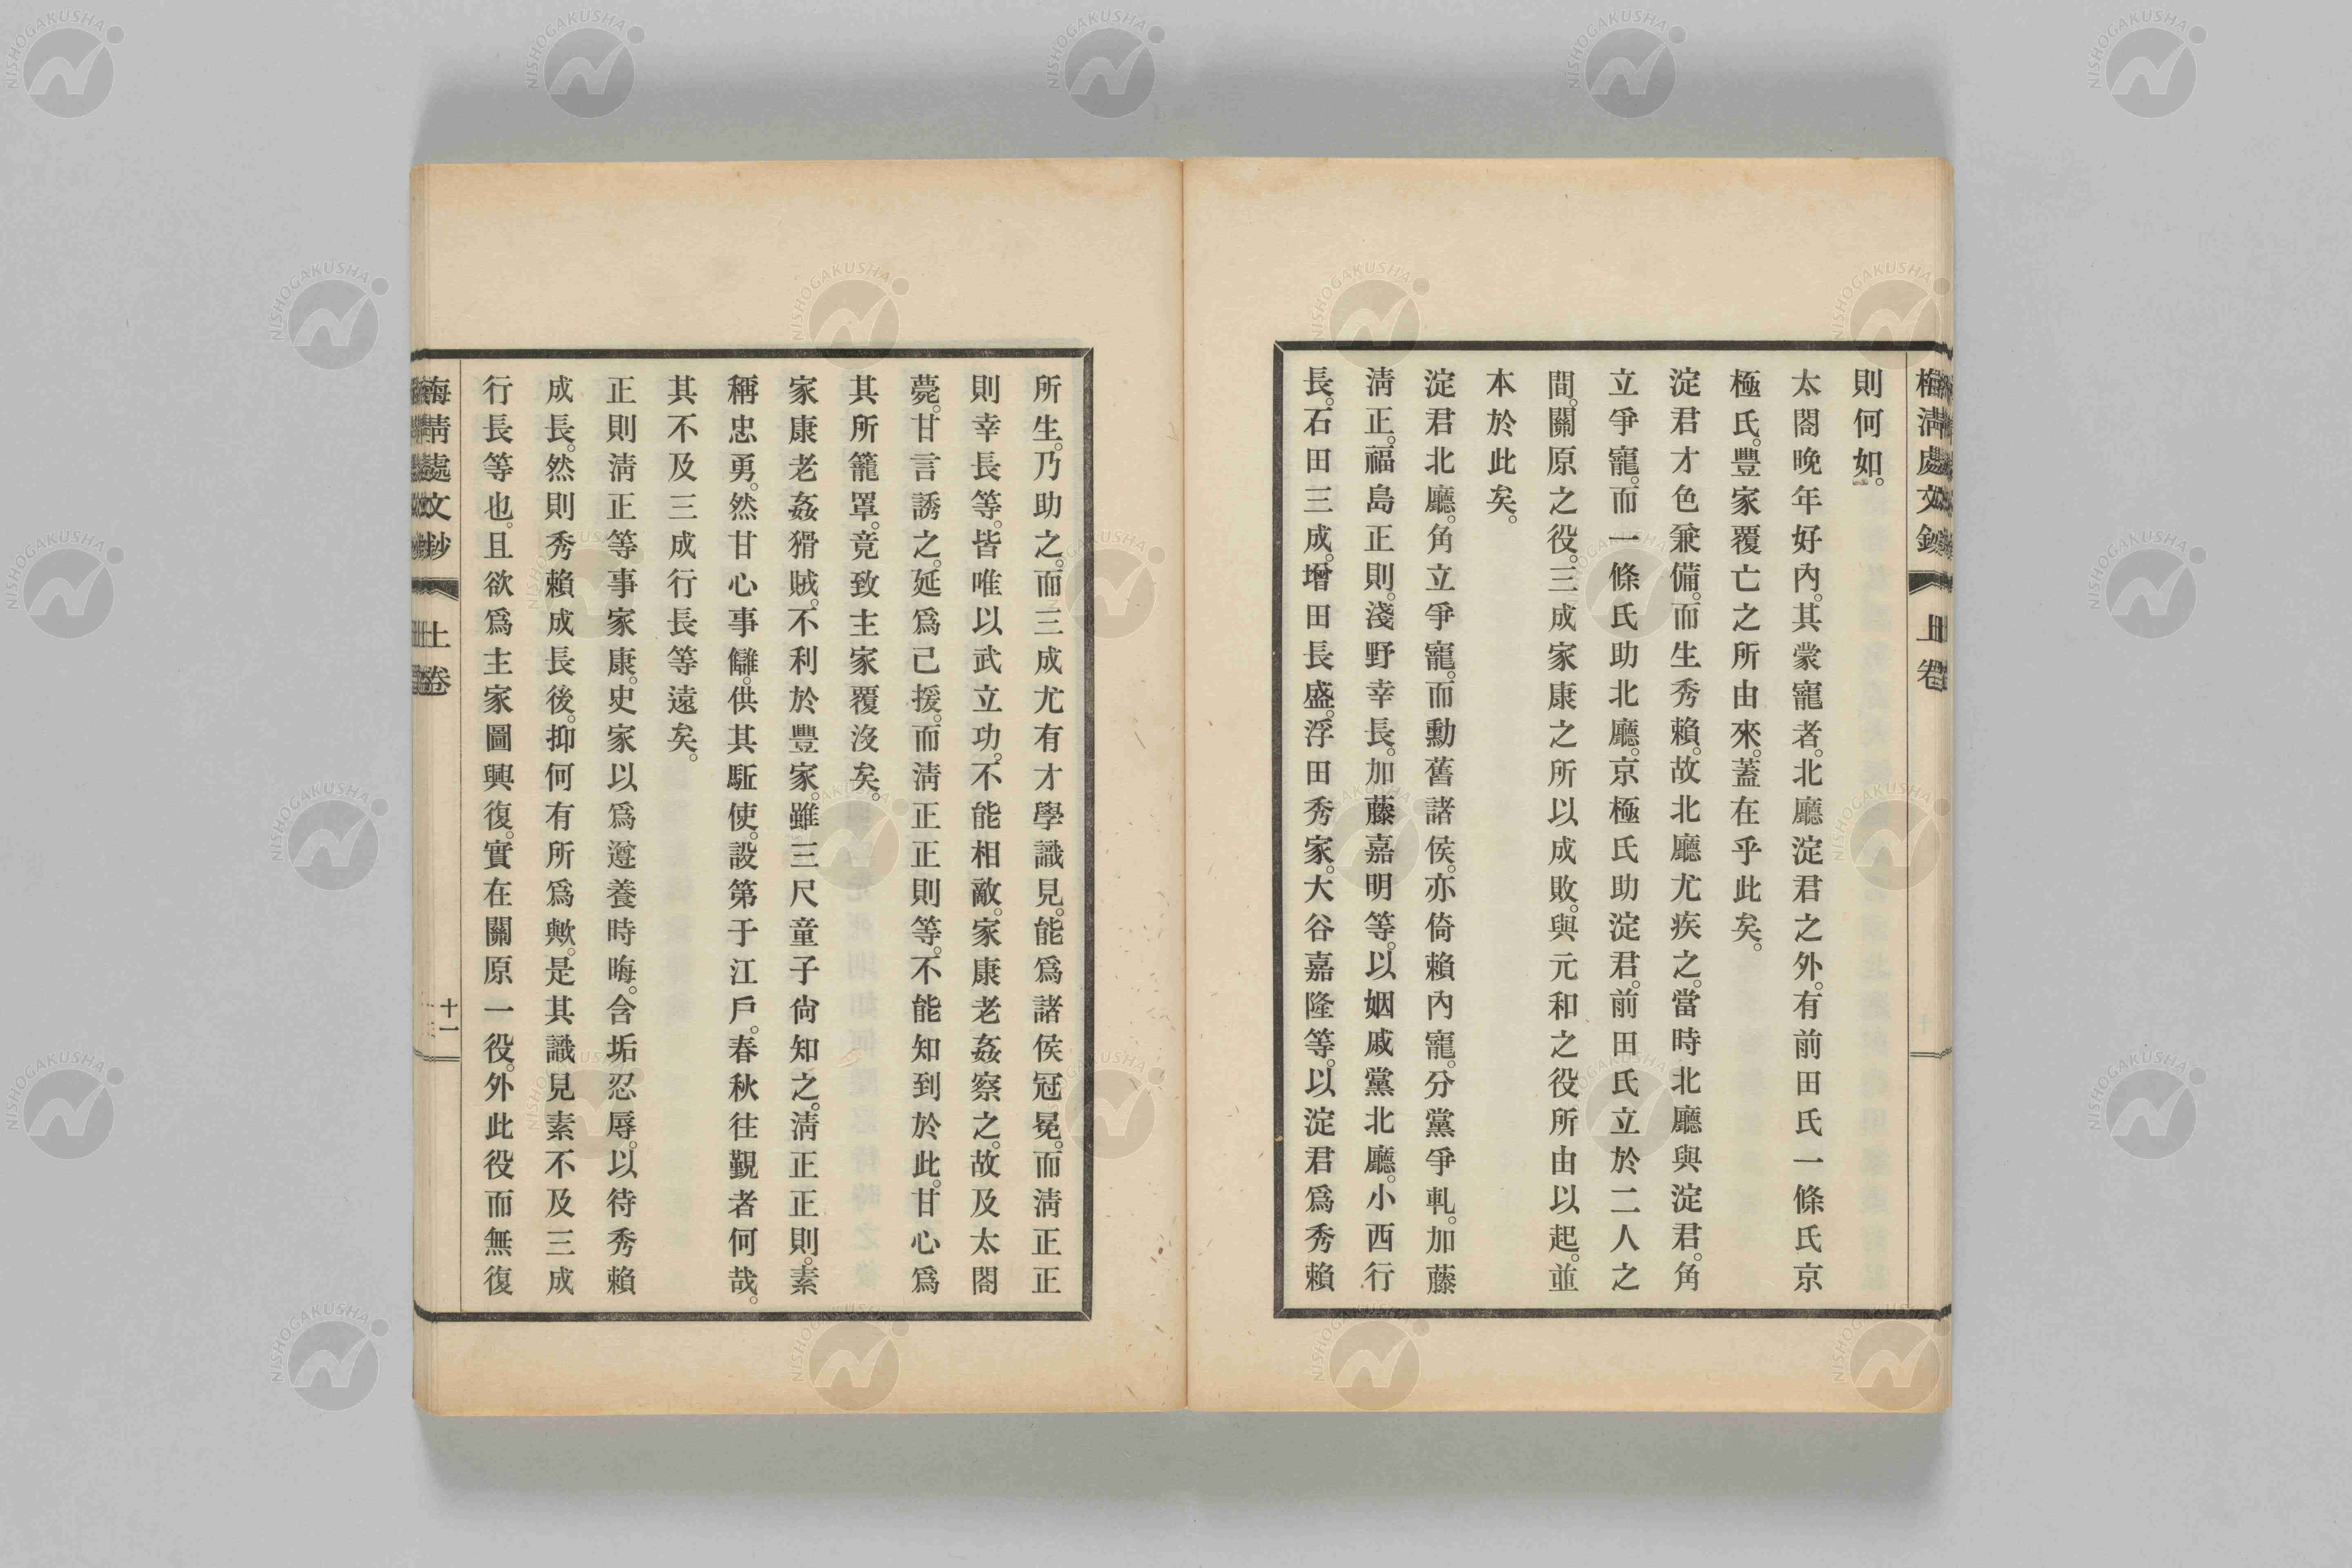 梅淸處文鈔 上卷
則何如。
太閤晩年好內。其蒙寵者。北廳淀君之外。有前田氏一條氏京
極氏。豐家覆亡之所由來。蓋在乎此矣。
淀君才色兼備。而生秀賴。故北廳尤疾之。當時北廳與淀君。角
立爭寵。而一條氏助北廳。京極氏助淀君。前田氏立於二人之
間。關原之役。三成家康之所以成敗。與元和之役所由以起。並
本於此矣。
淀君北廳。角立爭寵。而勳舊諸侯。亦倚賴內寵。分黨爭軋。加藤
淸正。福島正則。淺野幸長。加藤嘉明等。以姻戚黨北廳。小西行
長。石田三成。增田長盛。浮田秀家。大谷嘉隆等。以淀君爲秀賴
所生。乃助之。而三成尤有才學識見。能爲諸侯冠冕。而淸正正
則幸長等。皆唯以武立功。不能相敵。家康老姦察之。故及太閤
薨。甘言誘之。延爲己援。而淸正正則等。不能知到於此。甘心爲
其所籠罩。竟致主家覆沒矣。
家康老姦猾賊。不利於豐家。雖三尺童子尙知之。淸正正則。素
稱忠勇。然甘心事讎。供其駈使。設第于江戶。春秋往覲者何哉。
其不及三成行長等遠矣。
正則淸正等事家康。史家以爲遵養時晦。含垢忍辱。以待秀賴
成長。然則秀賴成長後。抑何有所爲歟。是其識見素不及三成
行長等也。且欲爲主家圖興復。實在關原一役。外此役而無復
梅淸處文鈔 上卷 十一